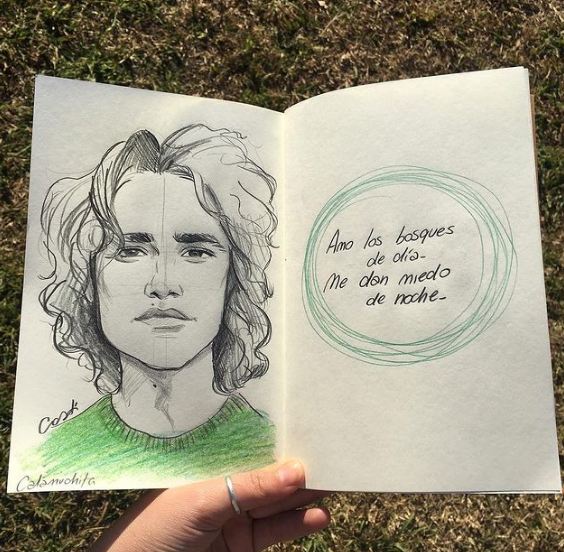 Casti
Calamuchita
Amo los bosques
de día_
Me dan miedo
de noche_